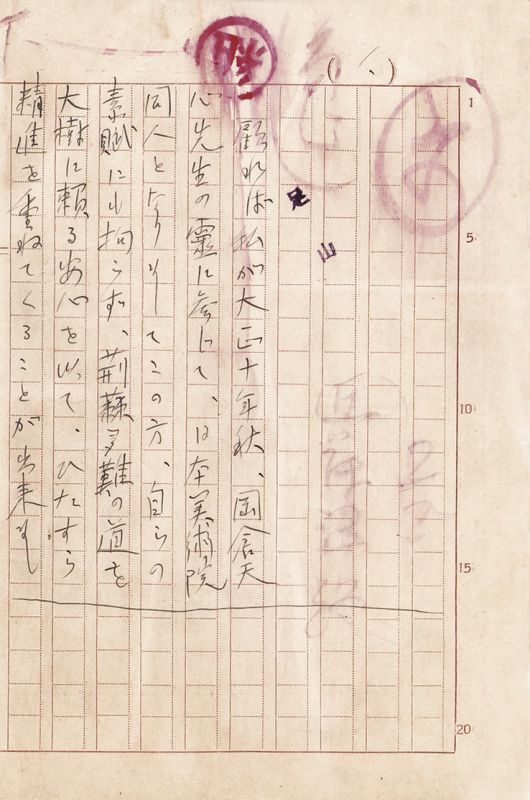 (一)
足山
顧れば私が大正十年秋、岡倉天
心先生の霊に参じて、日本美術院
同人となりましてこの方、自らの
素賦にも拘らず、荊蘇多難の道を
大樹に頼る安心を以て、ひたすら
精進を重ねてくることが出来まし
1
5
10
15
20